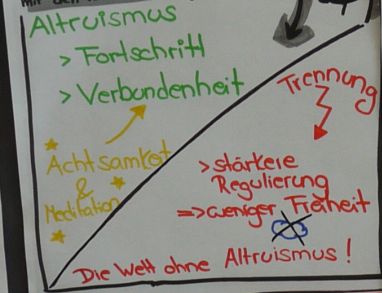 Altruismus
> Fortschritt
> Verbundenheit
Achtsamkeit
&
Meditation
Trennung
> stärkere
Regulierung
=> weniger Freiheit
Die Welt ohne Altruismus!